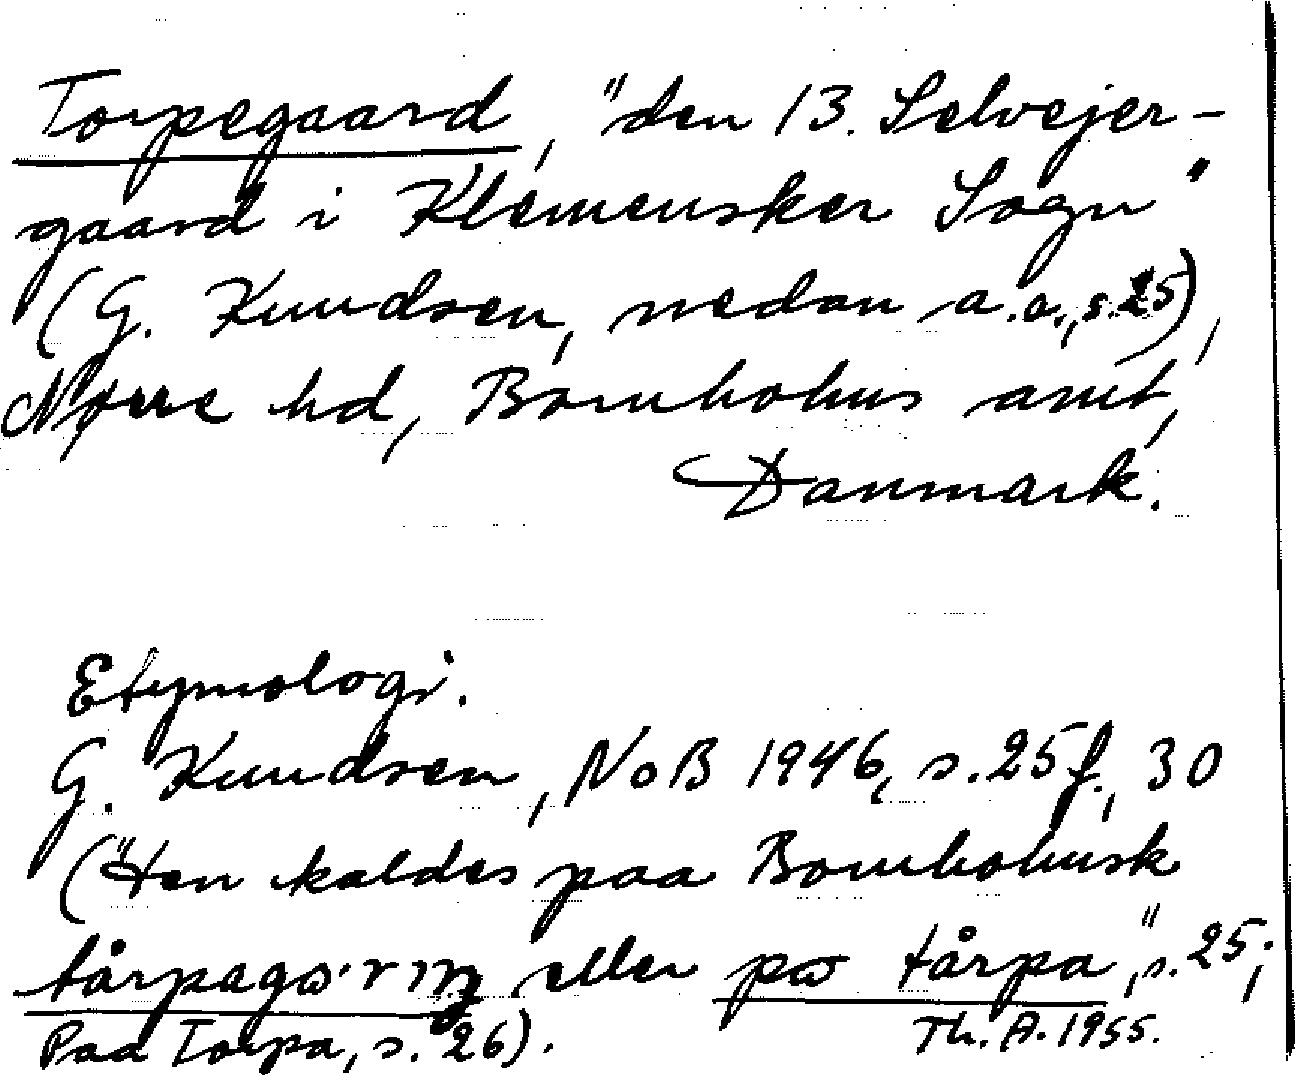 Torpegaard, "den 13. Selvejer-
gaard i Klemensker Sogn"
(G. Knudsen, nedan a.a., s. 25),
Nørre hd, Bornholms amt,
Danmark.
Etymologi.
G. Knudsen, NoB 1946, s. 25 f., 30
("Den kaldes paa Bornholmsk
tårpagω·r iɲ eller pω tårpa", s. 25;
Paa Torpa, s. 26).
Th. A. 1955.